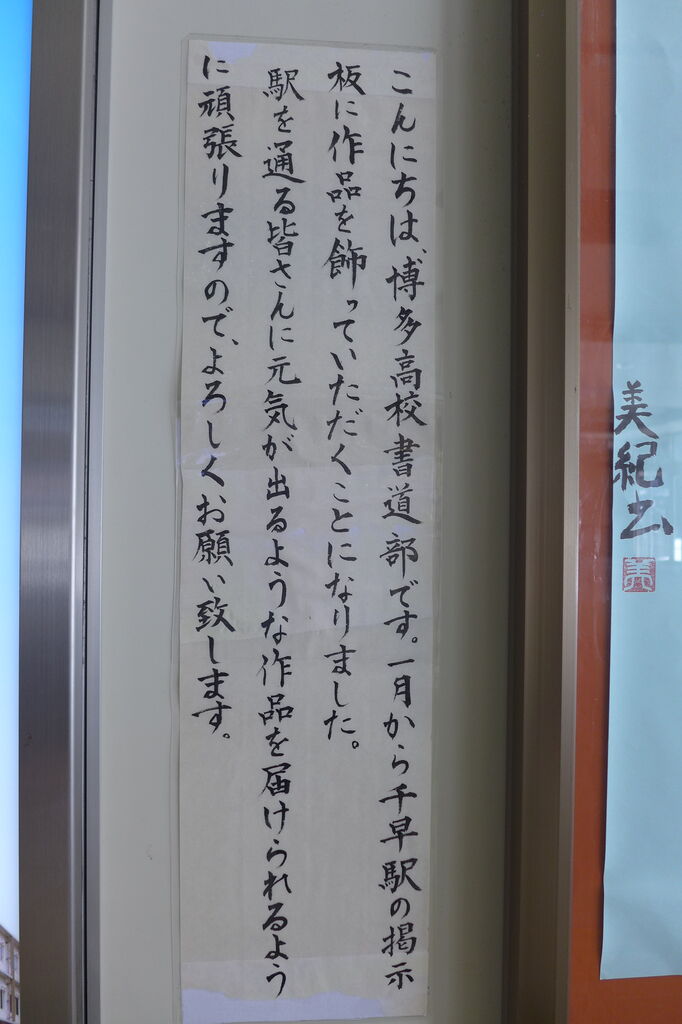 こんにちは、博多高校書道部です。一月から千早駅の掲示
板に作品を飾っていただくことになりました。
駅を通る皆さんに元気が出るような作品を届けられるよう
に頑張りますので、よろしくお願い致します。
美紀
美